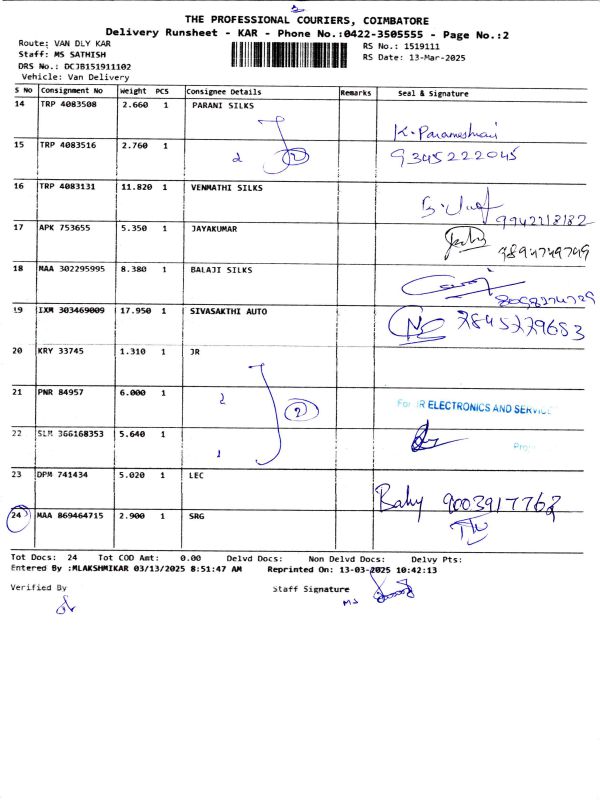 THE PROFESSIONAL COURIERS, COIMBATORE
Delivery Runsheet - KAR - Phone No.:0422-3505555 - Page No.:2
Route: VAN DLY KAR
RS No.: 1519111
Staff: MS SATHISH
RS Date: 13-Mar-2025
DRS No.: DCJB151911102
Vehicle: Van Delivery
S No Consignment No Weight PCS Consignee Details Remarks Seal & Signature
14 TRP 4083508 2.660 1 PARANI SILKS
K. Parameshwari
15 TRP 4083516 2.760 1
2 2 9345222045
16 TRP 4083131 11.820 1 VENMATHI SILKS
9942218182
17 APK 753655 5.350 1 JAYAKUMAR
7894749749
18 MAA 302295995 8.380 1 BALAJI SILKS
19 IXM 303469009 17.950 1 SIVASAKTHI AUTO
7845779653
20 KRY 33745 1.310 1 JR
21 PNR 84957 6.000 1
2 2 For JR ELECTRONICS AND SERVICE
22 SLM 366168353 5.640 1
1
23 DPM 741434 5.020 1 LEC
Baby 9003917762
24 MAA 869464715 2.900 1 SRG
Tot Docs: 24 Tot COD Amt: 0.00 Delvd Docs: Non Delvd Docs: Delvy Pts:
Entered By :MLAKSHMIKAR 03/13/2025 8:51:47 AM Reprinted On: 13-03-2025 10:42:13
Verified By Staff Signature
MS